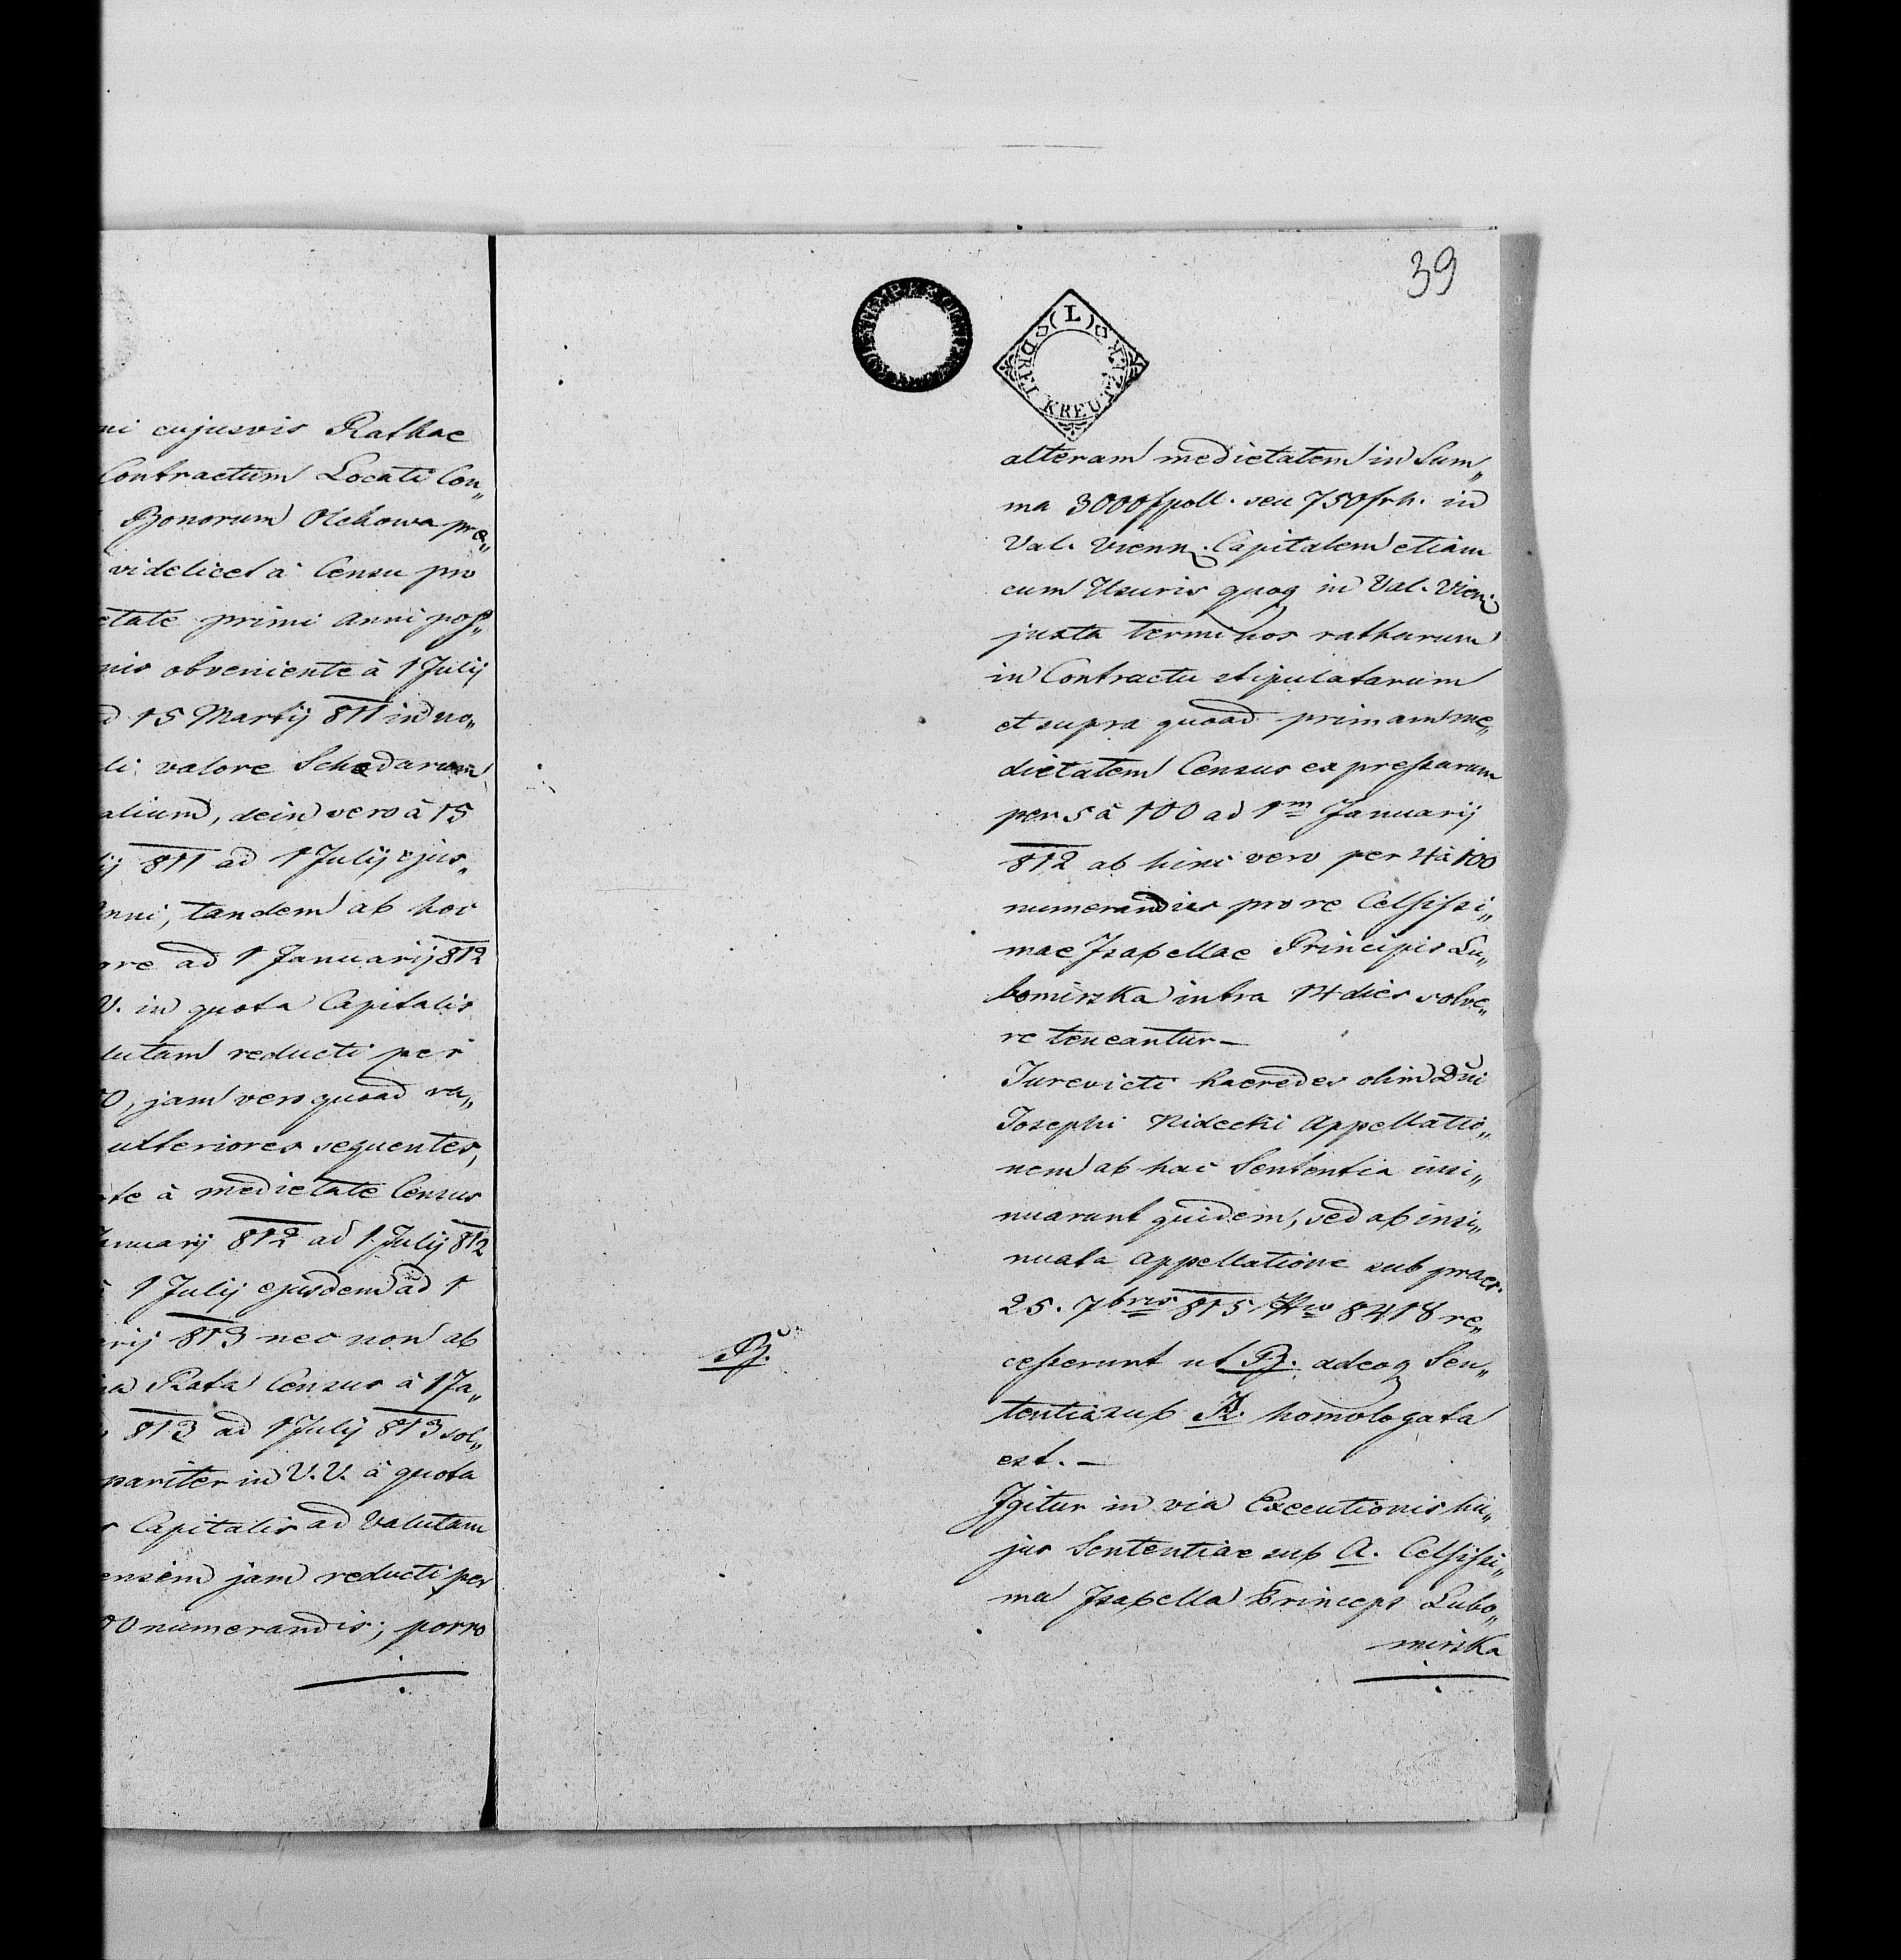 ni cujusvis Rathae
Contractum Locati Con„
Bonorum Olchowa pre„
videlicet à Censu pro
etate primi anni poss„
nis obveniente à 1 Julij
d 15 Martij 811 in no„
li valore Schedarum
alium, dein vero à 15
ij 811 ad 1 Julij ejus„
nni, tandem ab hoc
ore ad 1 Januarij 812
V. in quota Capitalis
lutam reducti per
0, jam vero quoad ra„
ulteriores sequentes,
te à medietate Census
anuarij 812 ad 1 Julij 812
à 1 Julij ejusdem ad 1
rij 813 nec non ab
na Rata Census à 1 Ja„
813 ad 1 Julij 813 sol„
pariter in V. V. à quota
s Capitalis ad Valutam
ensem jam reducti per
00 numerandis; porro
39
(L)
DREI KREUTZER
alteram medietatem in Sum„
ma 3000 fpoll. seu 750 frh. in
Val. Vienn. Capitalem etiam
cum Usuris quoq in Val. Vien.
juxta terminos ratharum
in Contractu stipulatarum
et supra quoad primam me„
dietatem Census expressarum
per 5 à 100 ad 1m Januarij
812 ab hinc vero per 4 à 100
numerandis pro re Celsissi„
mae Isabellae Principis Lu„
bomirska intra 14 dies solve„
re teneantur —
Jurevicti haeredes olim Dni
Josephi Nidecki Appellatio„
nem ab hac Sententia insi„
nuarunt quidem, sed ab insi„
nuata appellatione sub praes.
25. 7bris 815 Nro 8418 re„
cesserunt ut B. adeoq Sen„
B.
tentia sub A. homologata
est. —
Igitur in via Executionis hu„
jus Sententiae sub A. Celsissi„
ma Isabella Princeps Lubo„
mirska